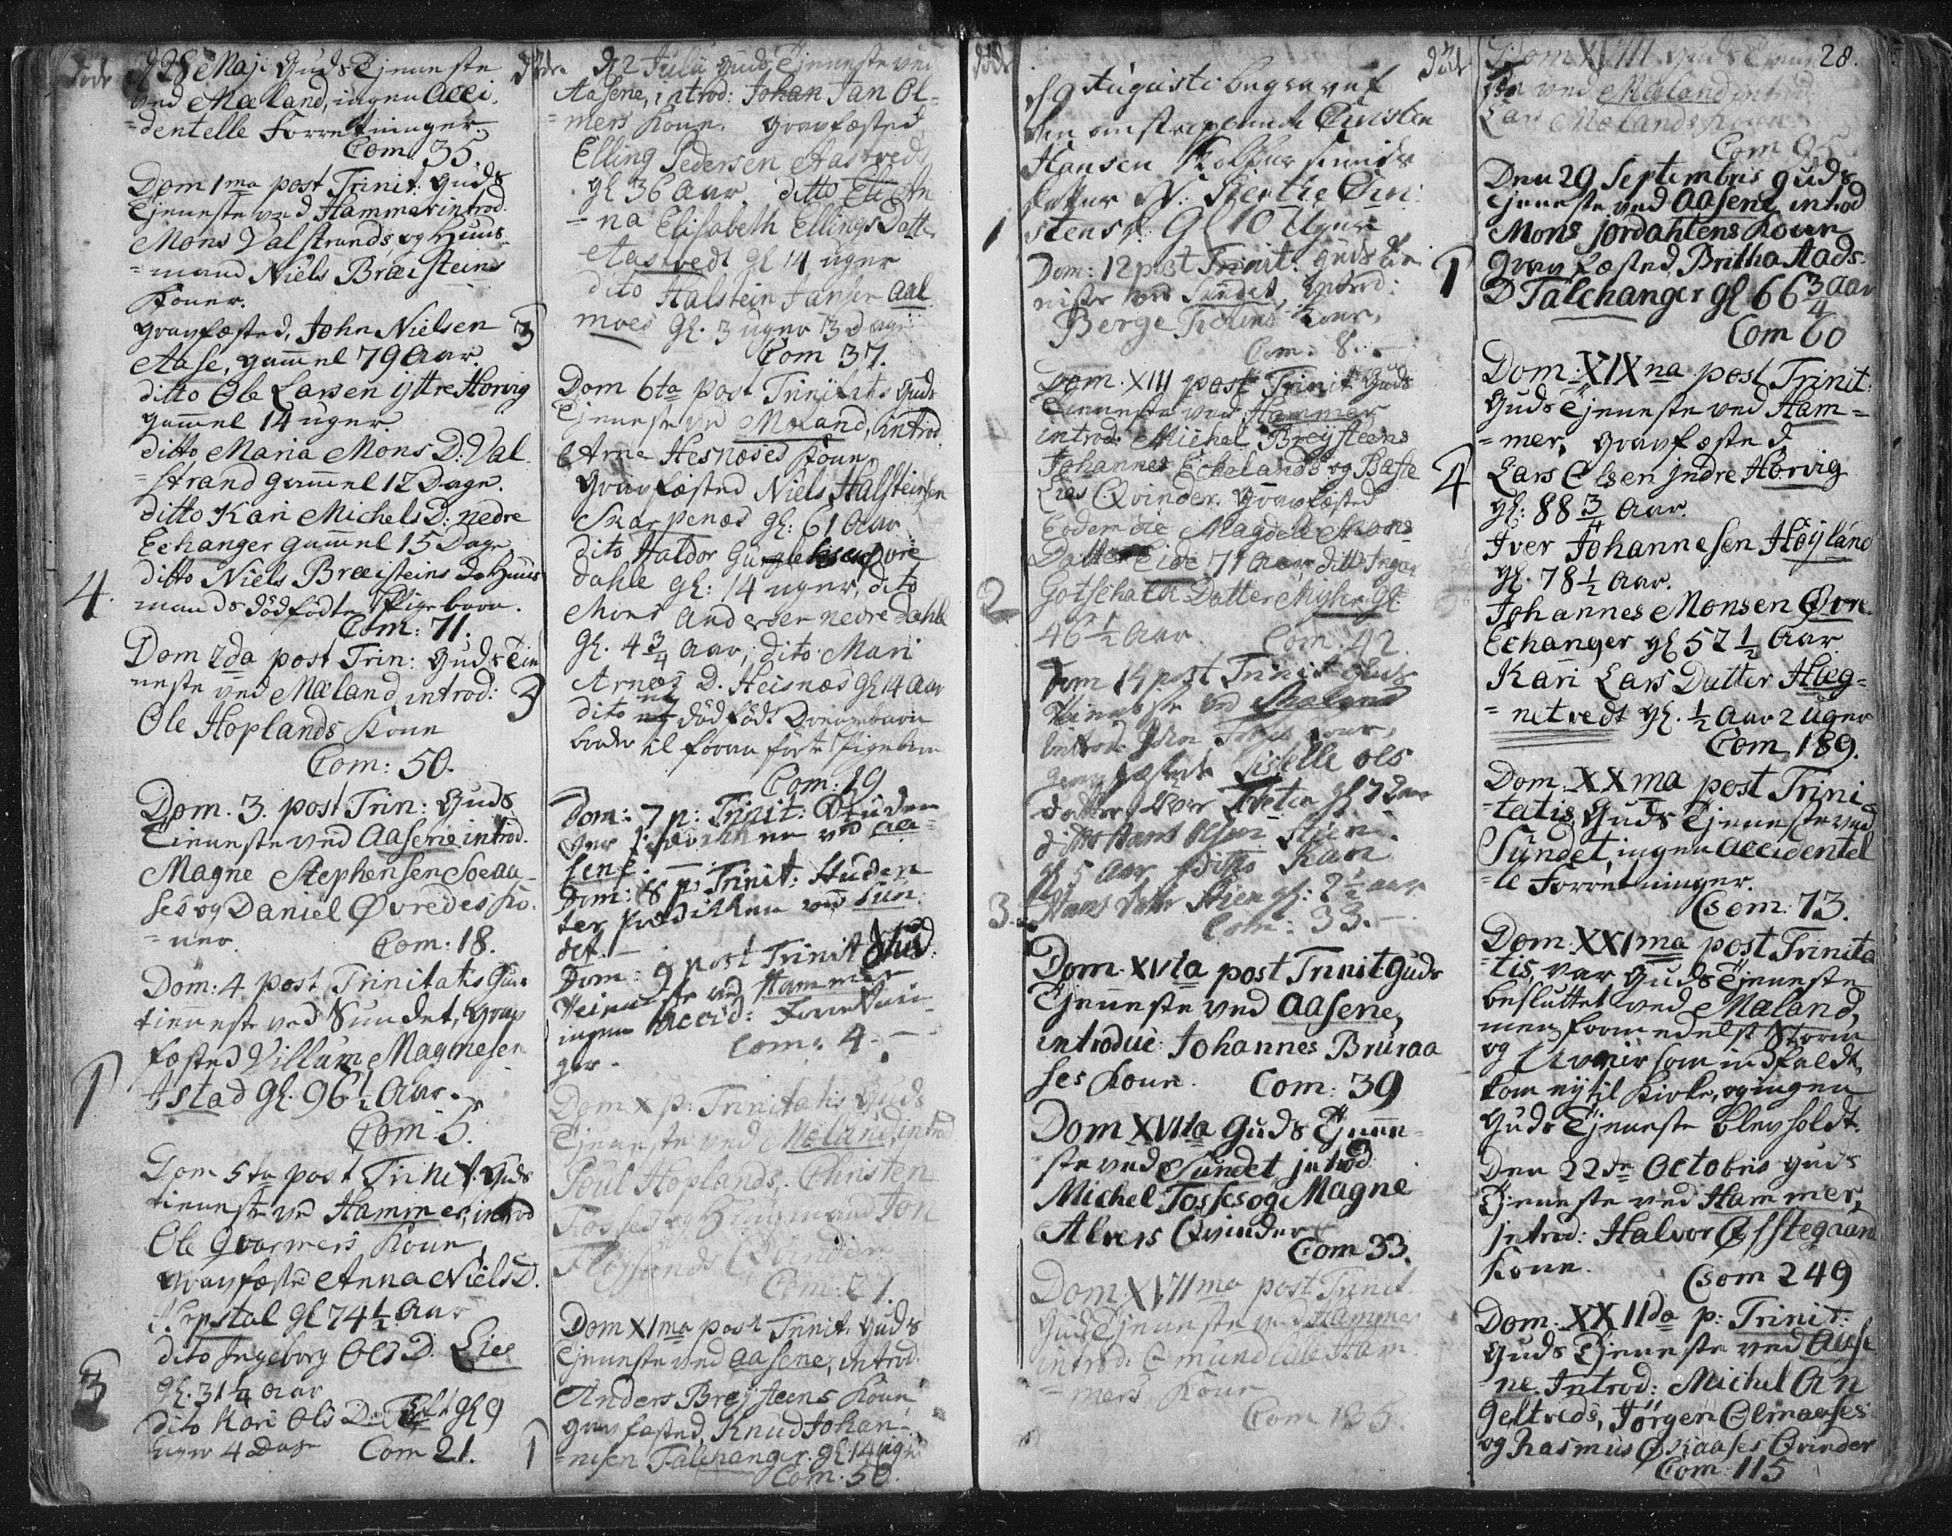 døde
d 28 Maji Guds Tjeneste
ved Mæland, ingen Acci-
=dentelle Forretninger.
Com. 35.
Dom 1ma post Trinit. Guds
Tjeneste ved Hammer introd.
Mons Valstrands og Huus-
=mand Niels Bræisteins
Koner.
Gravfæsted, John Nielsen
Aase, gammel 79 Aar.
ditto Ole Larsen Ytre Horvig
gammel 14 uger.
ditto Maria Mons D. Val-
=strand gammel 12 Dage.
ditto Kari Michels D: nedre
Echanger gammel 15 Dage
ditto Niels Bræisteins do Huus
4. mands dødfødte Pigebarn.
Com: 71.
Dom 2da post Trin: Guds Tie
neste ved Mæland, introd:
Ole Hoplands Kone
Com: 50.
Dom. 3. post Trin: Guds
Tieneste ved Aasene introd.
Magne Stephensen Soeaa-
ses og Daniel Øvredes Ko-
=ner. Com: 18.
Dom: 4 post Trinitatis Guds
tieneste ved Sundet, Grav
fæsted Villum Magnesen
1 Istad Gl. 96 1/2 Aar.
Com: 5.
Dom 5ta post Trinit. Guds
tieneste ved Hammer, introd
Ole Qvarmens Kone,
Gravfæsted Anna Niels D.
Gl 74 1/2 Aar
dito Ingeborg Ols D. Lice
3 gl. 31 1/4 Aar
dito Kari Ols D. gl 9
uger 4 Dage Com 21.
døde
d 2 Julii Guds Tjeneste ved
Aasene, introd: Johan Jan Ol-
=mers Kone. Gravfæsted
Elling Pedersen Aastvedt
gl 36 Aar, ditto
=na Elisabeth Ellings Datter
Aastvedt gl 14 uger
dito Halstein Jansen Aal
3 moes gl. 3 uger 3 Dage
Com 37.
Dom 6ta post Trinitatis Guds
Tjeneste ved Mæland, introd
Arne Hesnøses Kone,
Gravfæsted Niels Halsteinsen
Skarpenæs gl: 61 Aar
dito Haldor øvre
dahle gl: 14 uger, dito
Mons Andersen nedre Dahle
gl. 4 3/4 Aar, dito Mari
3 Arnes D. Heisnæs gl 14 Aar
dito dødfødt Drengebarn
til foran førte Pigebarn
Com: 19
Dom: 7 p: Trinit: Studen
ter Prædikken ved Aa-
sene.
Dom: 8 p: Trinit: Studen
ter Prædikken ved Sun
det.
Dom: 9 post Trinit Guds
tieneste ved Hammer
ingen Accid: Forretnin-
ger. Com: 4.
Dom X p: Trinitatis Guds
Tjeneste ved Mæland, introd
Poul Hoplands, Christen
Fosses og Huusmand Jon
Com: 21.
Dom XIma post Trinit. Guds
Tjeneste ved Aasene, introd.
Anders Breysteens Kone
Gravfæsted, Knud Johan-
1 =nesen Falchanger. gl. 14 uger
Com. 50.
døde
d 9 Augusti begravet
den omstrippende Christen
Hansen
datter N: Berthe Chri-
1 stens D: gl 10 Uger
Dom: 12 post Trinit: Guds tie
niste ved Sundet, introd:
Berge Kone,
Com: 8.
Dom. XIII post Trinit Guds
Tieneste ved Hammer
introd: Michel Breysteens
Johannes Echelands og Baste
Lies Qvinder. Gravfæsted
Magdele Mons
Datter Eide 71 Aar ditto
2 Gotschalk Datter Myhre gl
46 1/2 Aar. Com: 42.
Dom 14 post Trinit Guds
Tieneste ved Mæland
introd. Kone,
Gravfæstede Siselle Ols
datter gl 72 Aar
ditto Hans Olsen Stien
gl 5 Aar ditto Kari
3. Hans dater Stien gl: 2 1/2 Aar
Com: 33.
Dom. XVta post Trinit Guds
Tjeneste ved Aasene,
introduc: Johannes Bruraa
ses Kone. Com: 39
Dom XVIta Guds Tjene-
ste ved Sundet introd
Michel Fosses og Magne
Alvers Qvinder
Com 33.
Dom XVIIma post Trinit.
Guds Tjeneste ved Hammer
introd: Omund lille Ham-
=mers Kone
Com 135.
død 28.
Dom XVIII Guds Tjene
ste ved Mæland introd
Lars Mælands Kone
Com 95.
Den 29 Septembris Guds
Tjeneste ved Aasene introd
Mons Jordahlens Kone
1 Gravfæsted, Britha Aads
D Falchanger gl 66 3/4 Aar
Com 60
Dom: XIXna post Trinit.
Guds Tjeneste ved Ham=
=mer, Gravfæsted
4 Lars Olsen Indre Horvig
gl: 88 3/4 Aar.
Iver Johannesen Høyland
gl. 78 1/2 Aar.
Johannes Monsen Øvre
Echanger gl 52 1/2 Aar
Kari Lars Datter Hæg=
=netvedt gl. 1/2 Aar 2 Uger
Com 189.
Dom: XXma post Trini-
=tatis Guds Tjeneste ved
Sundet, ingen Accidentel
=le Forretninger.
Com: 73.
Dom: XXIma post Trinita
=tis, var Guds Tjeneste
besluttet ved Mæland,
men formedelst Storm
og Uveir som indfaldt,
kom ey til Kirke, og ingen
Guds Tjeneste blev holdt.
Den 22de Octobris Guds
Tjeneste ved Hammer,
introd: Halvor Østegaard
Kone. Com 249
Dom: XXIIda p: Trinit:
Guds Tjeneste ved Aase
ne. Introd: Michel An
geltveds, Jørgen Olmaases
og Rasmus Øskaases Qvinder
Com: 115